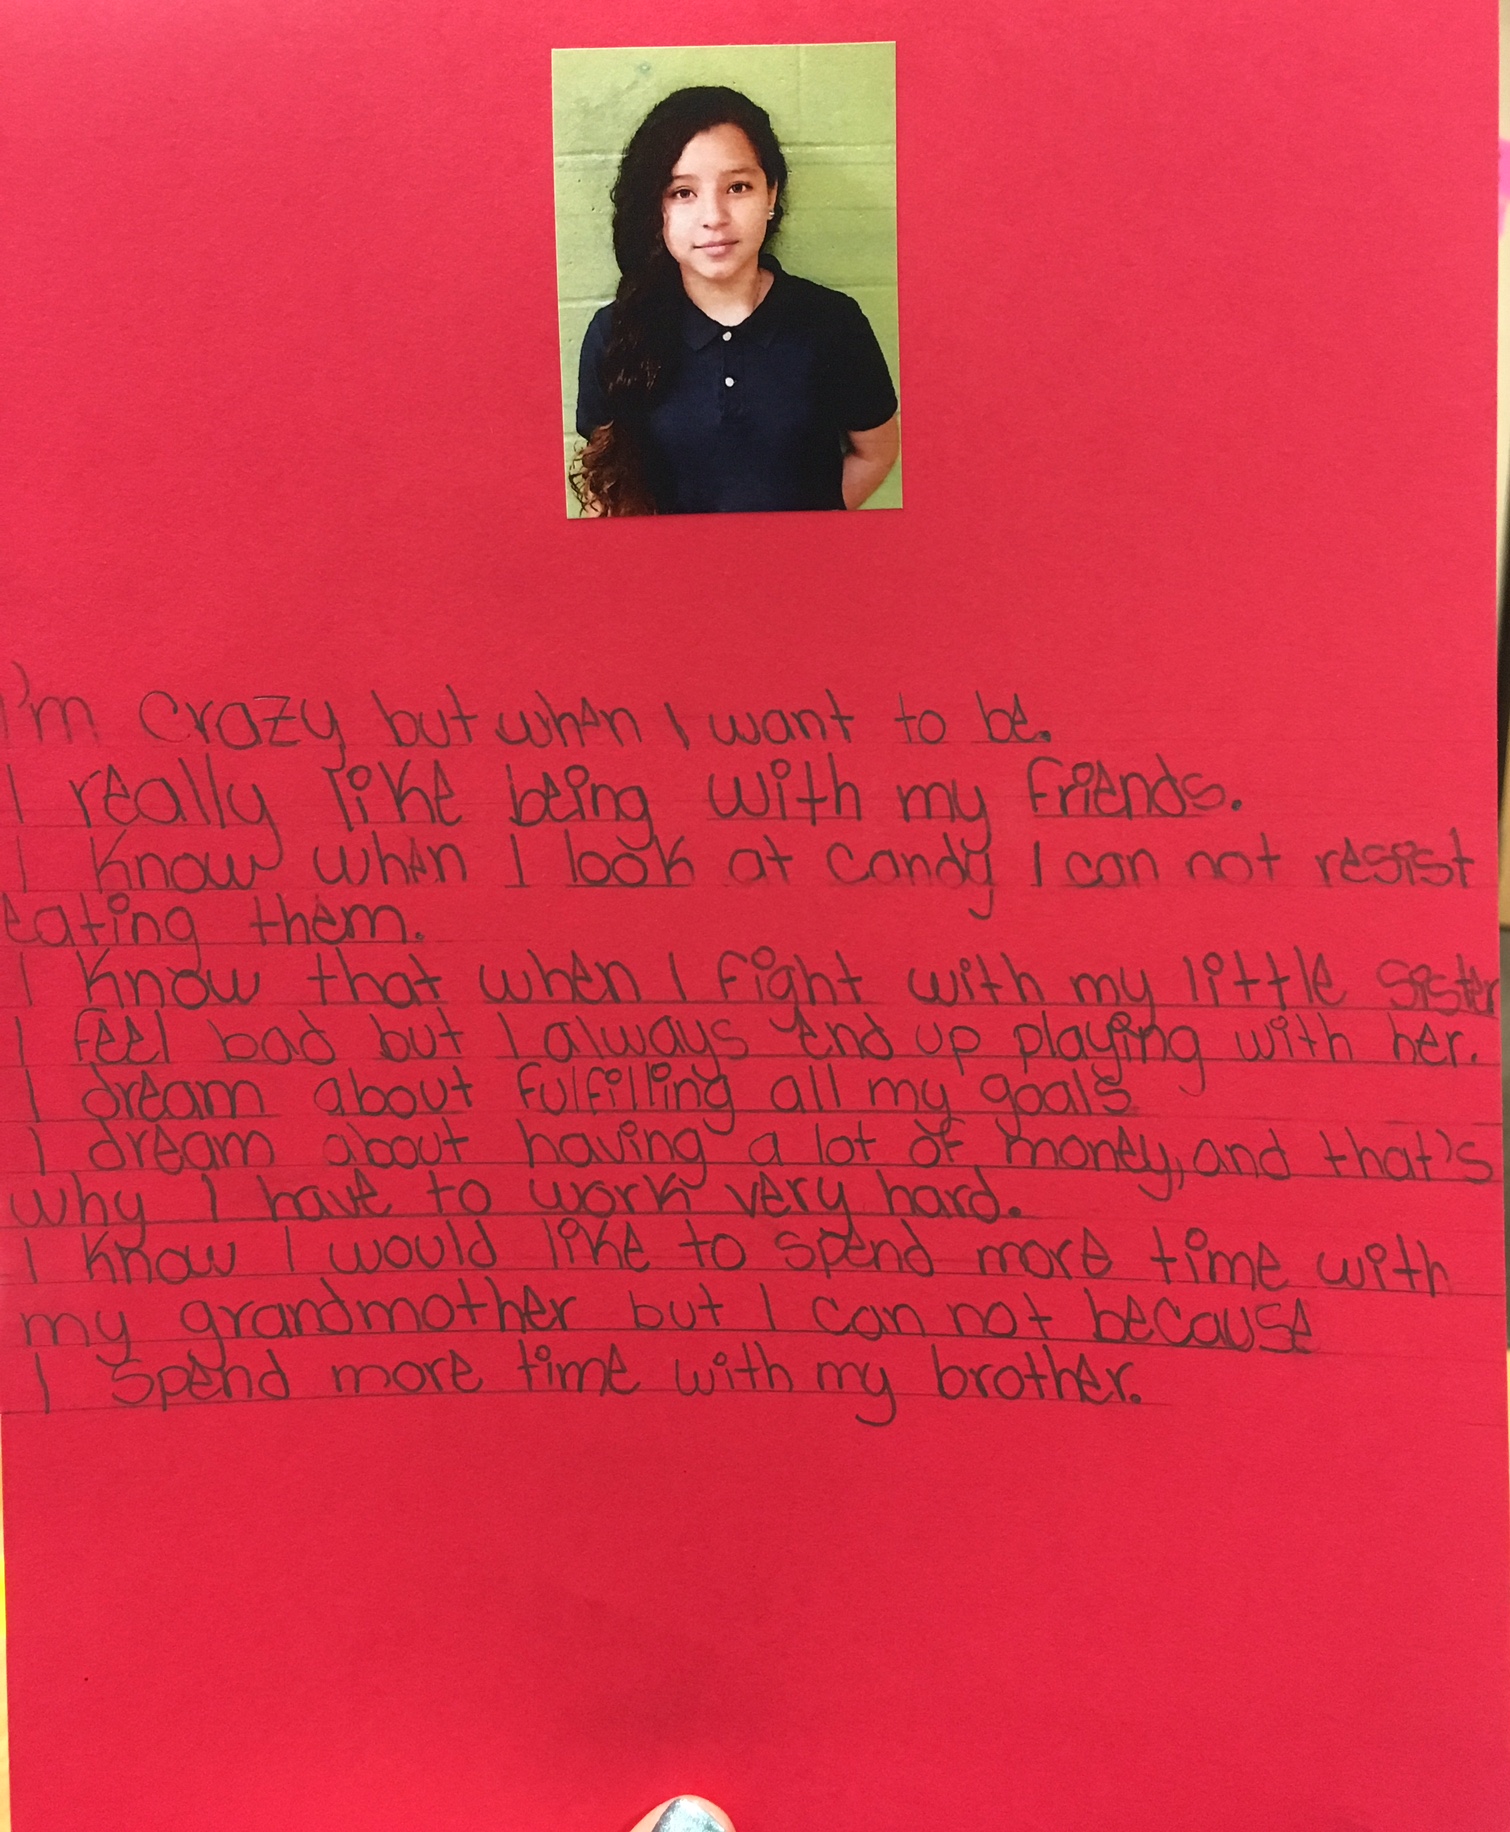 I'm crazy but when I want to be.
I really like being with my friends.
I know when I look at candy I can not resist
eating them.
I know that when I fight with my little sister
I feel bad but I always end up playing with her.
I dream about fulfilling all my goals
I dream about having a lot of money, and that's
why I have to work very hard.
I know I would like to spend more time with
my grandmother but I can not because
I spend more time with my brother.